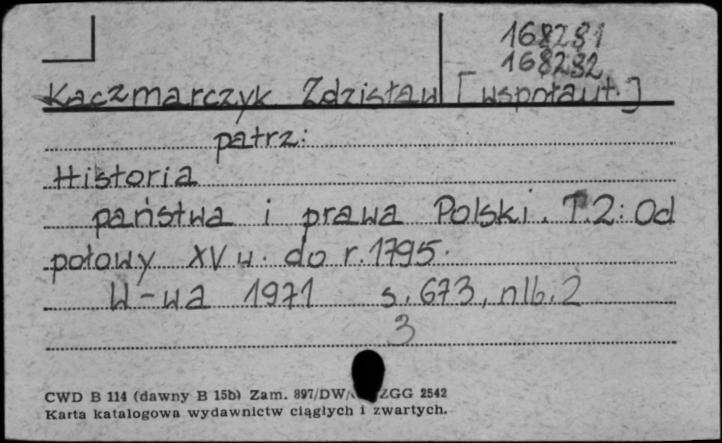 168281
168282
Kaczmarczyk Zdzisław [współaut.]
patrz:
Historia
państwa i prawa Polski. T.2: Od
połowy XV w. do r. 1795.
W-wa 1971 s. 673, nlb. 2
3
CWD B 114 (dawny B 15b) Zam. 897/DW/ ZGG 2542
Karta katalogowa wydawnictw ciągłych i zwartych.